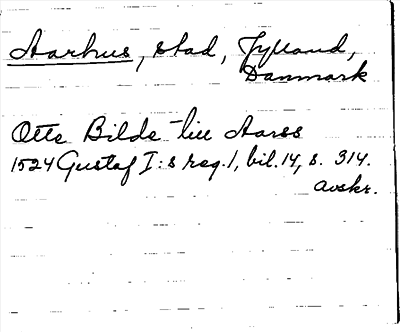 Aarhus, stad, Jylland,
Danmark
Otte Bilde till Aarss
1524 Gustaf I:s reg. 1, bil. 14, s. 314.
avskr.